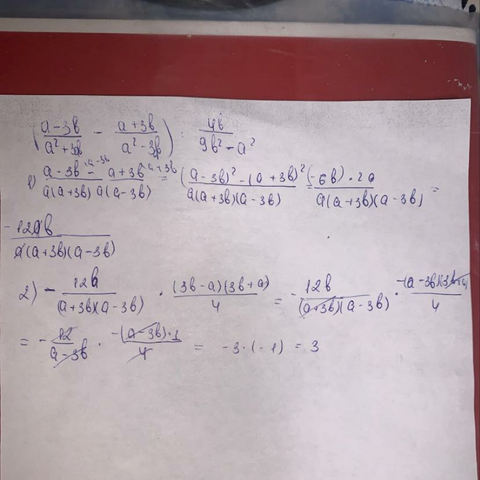 (\frac{a-3b}{a^2+3b} - \frac{a+3b}{a^2-3b}) : \frac{4b}{9b^2-a^2}
1) \frac{a-3b}{a(a+3b)}^{a-3b} - \frac{a+3b}{a(a-3b)}^{a+3b} = \frac{(a-3b)^2-(a+3b)^2}{a(a+3b)(a-3b)} = \frac{(-6b) \cdot 2a}{a(a+3b)(a-3b)} =
\frac{-12ab}{a(a+3b)(a-3b)}
2) - \frac{12b}{(a+3b)(a-3b)} \cdot \frac{(3b-a)(3b+a)}{4} = - \frac{12b}{(a+3b)(a-3b)} \cdot \frac{-(a-3b)(3b+a)}{4}
= - \frac{12}{a-3b} \cdot \frac{-(a-3b) \cdot 1}{4} = -3 \cdot (-1) = 3